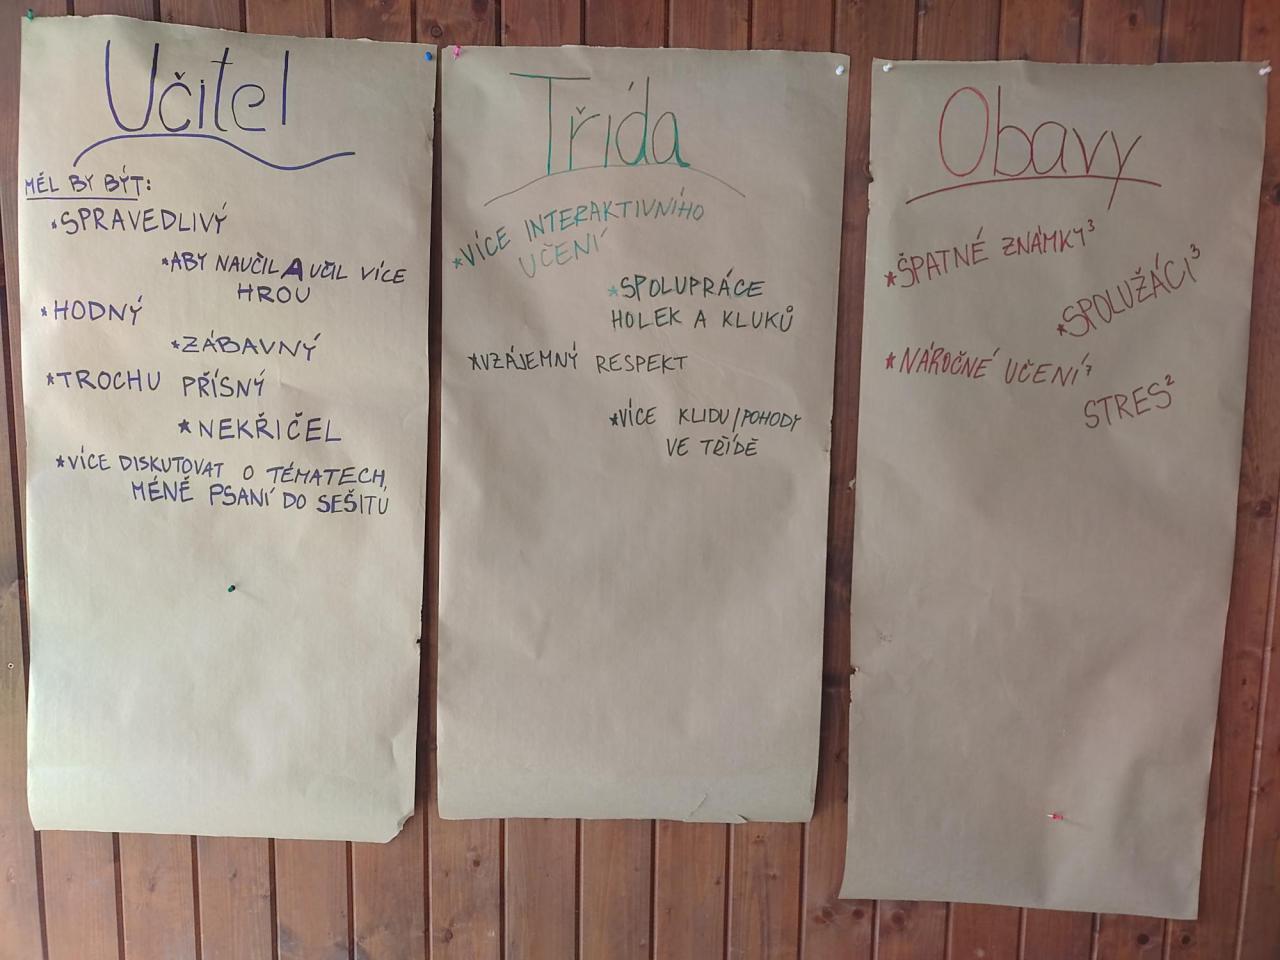 Učitel
MĚL BY BÝT:
*SPRAVEDLIVÝ
*ABY NAUČIL A UČIL VÍCE
HROU
*HODNÝ
*ZÁBAVNÝ
*TROCHU PŘÍSNÝ
*NEKŘIČEL
*VÍCE DISKUTOVAT O TÉMATECH,
MÉNĚ PSANÍ DO SEŠITU
Třída
*VÍCE INTERAKTIVNÍHO
UČENÍ
*SPOLUPRÁCE
HOLEK A KLUKŮ
*VZÁJEMNÝ RESPEKT
*VÍCE KLIDU/POHODY
VE TŘÍDĚ
Obavy
*ŠPATNÉ ZNÁMKY³
*SPOLUŽÁCI³
*NÁROČNÉ UČENÍ⁷
STRES²